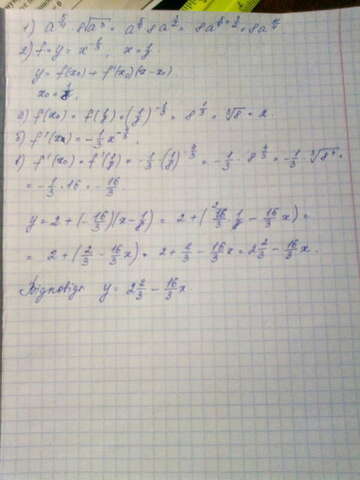 2) f = y = x^{-1/3}, x = 1/8.
y = f(x₀) + f'(x₀)(x-x₀)
x₀ = 1/8.
а) f(x₀) = f(1/8) = (1/8)^{-1/3} = 8^{1/3} = ³√8 = 2.
б) f'(x₀) = -1/3 x^{-4/3}.
в) f'(x₀) = f'(1/8) = -1/3 (1/8)^{-4/3} = -1/3 · 8^{4/3} = -1/3 · ³√8⁴ =
= -1/3 · 16 = -16/3
y = 2 + (-16/3)(x - 1/8) = 2 + (16/3 · 1/8 - 16/3 x) =
= 2 + (2/3 - 16/3 x) = 2 + 2/3 - 16/3 x = 2 2/3 - 16/3 x.
Відповідь y = 2 2/3 - 16/3 x